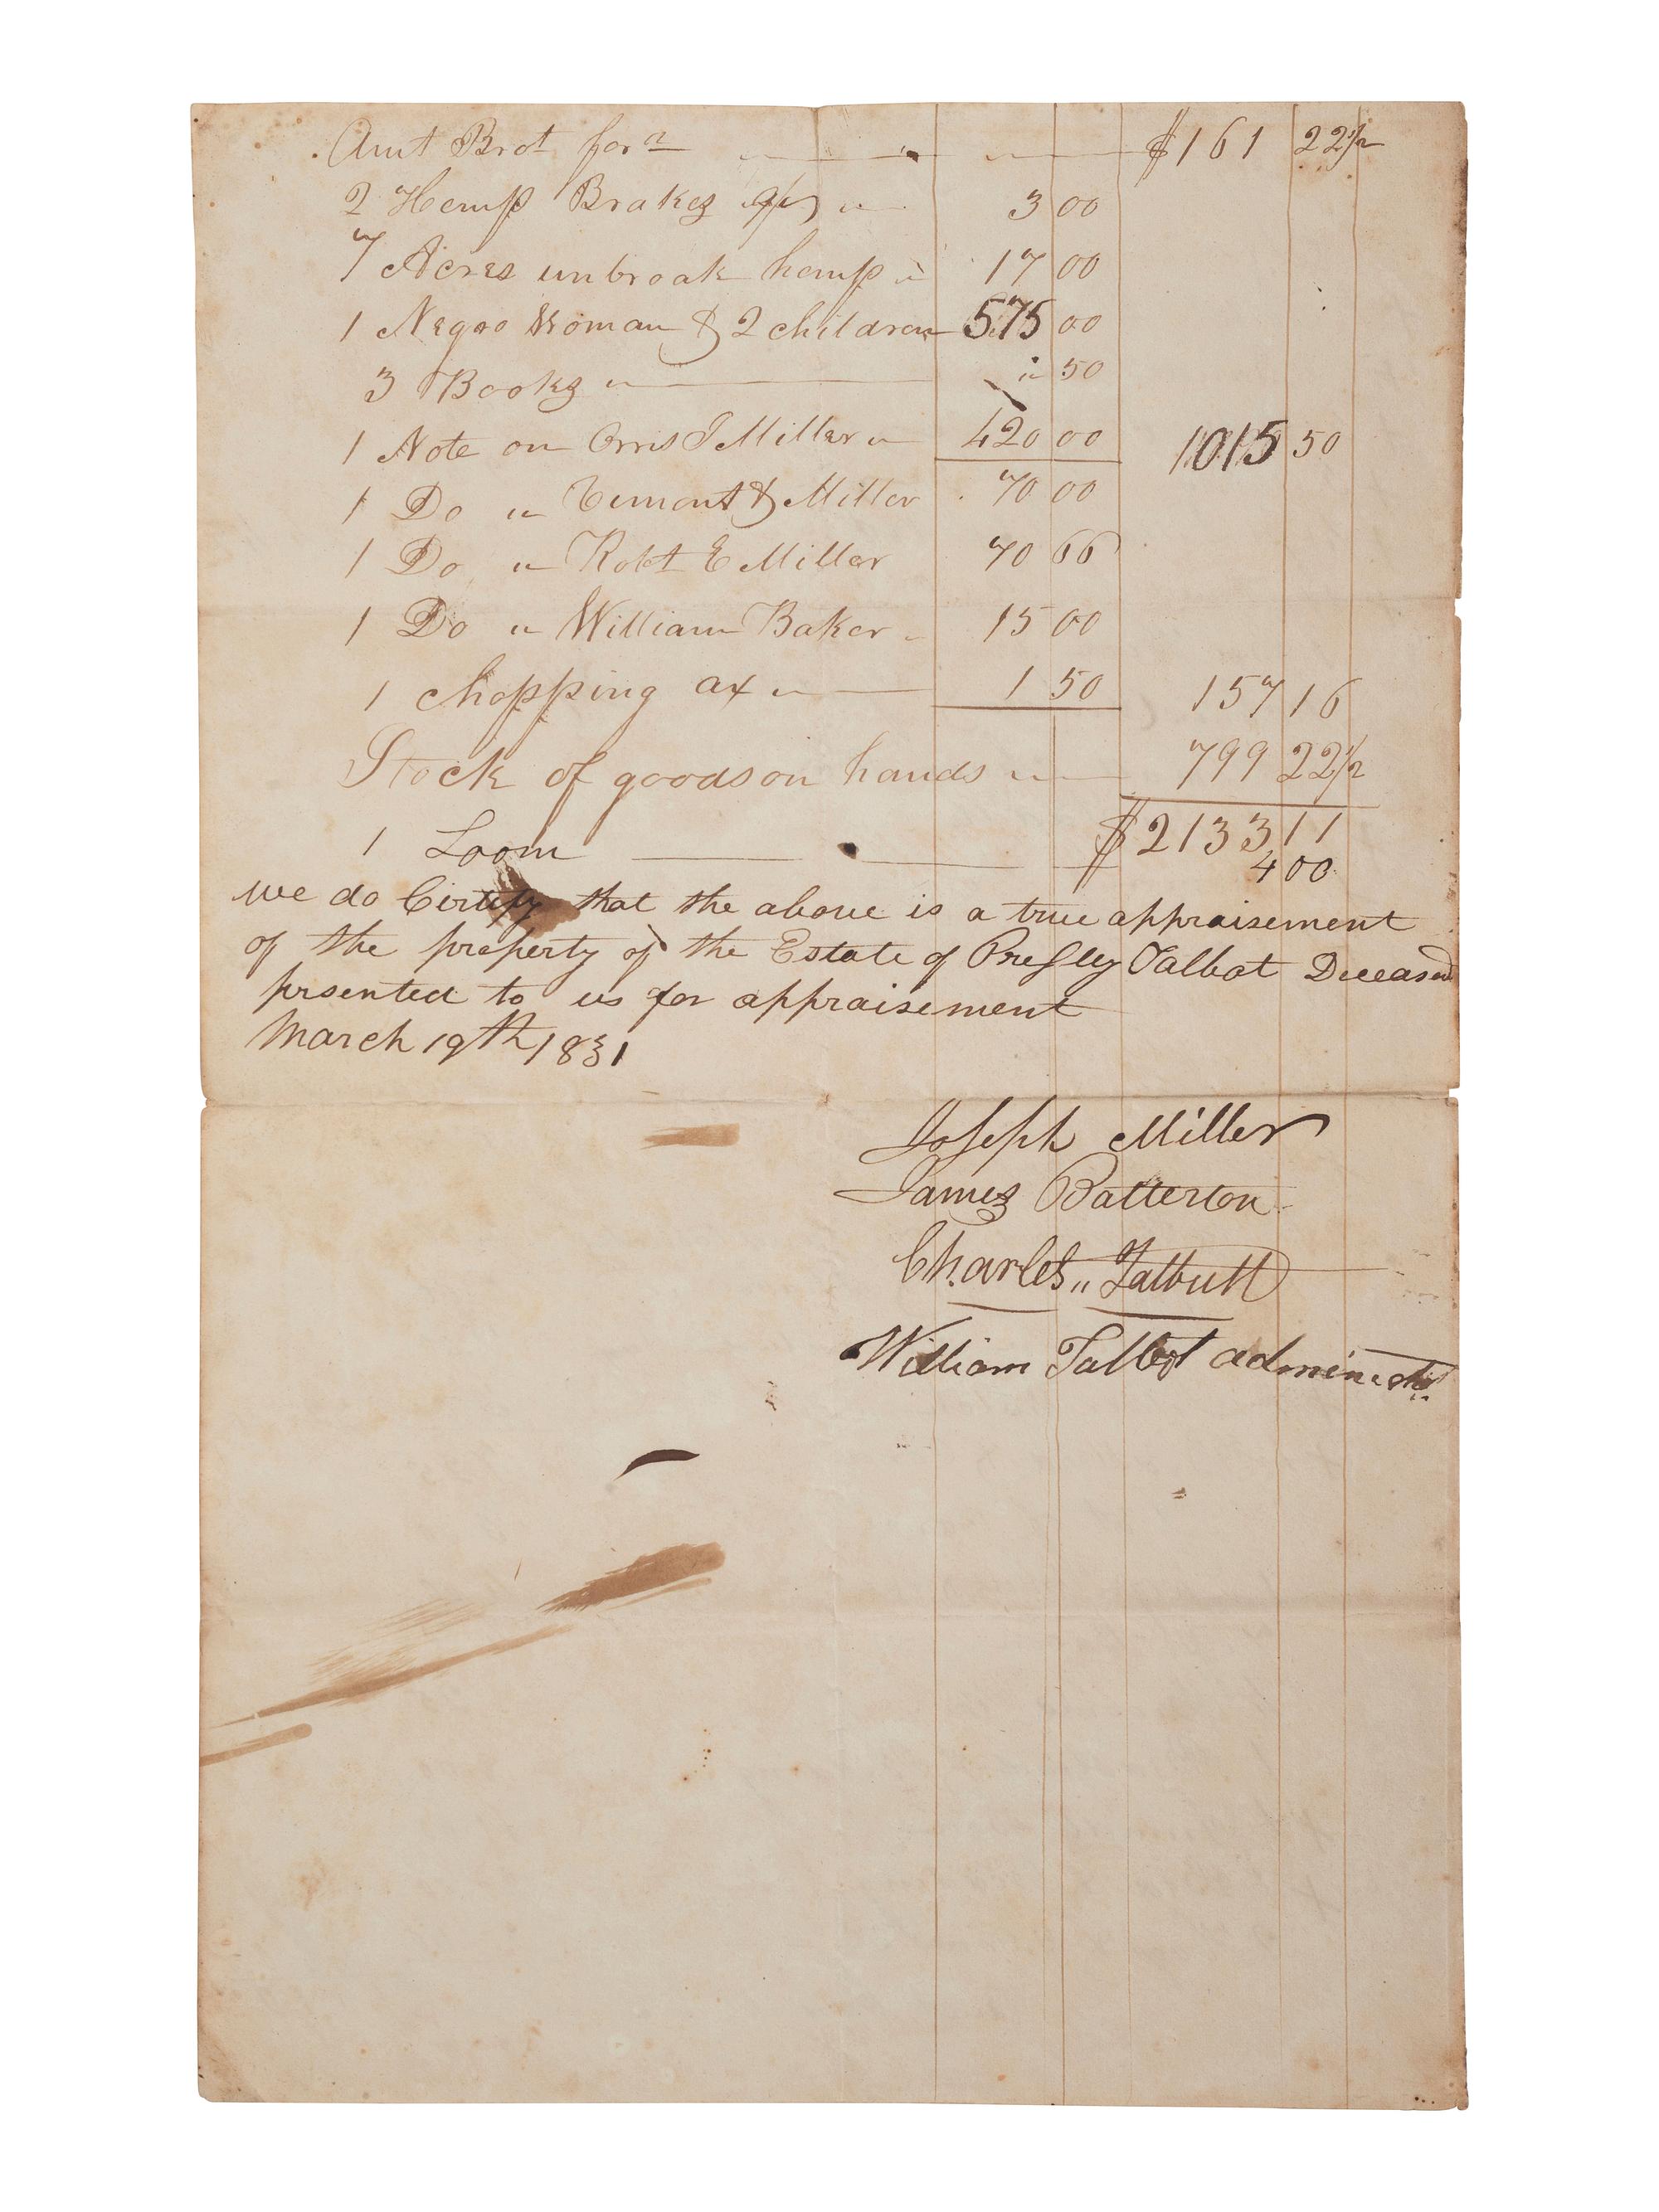 Amt Brot for^d $161 22 1/2
2 Hemp Brakes 3 00
7 Acres unbroak hemp " 17 00
1 Negro Woman & 2 children 575 00
3 Books " " 50
1 Note on Orris J Miller " 420 00 1015 50
1 Do " & Miller 70 00
1 Do " Robt E Miller 70 66
1 Do " William Baker " 15 00
1 chopping ax " 1 50 157 16
Stock of goods on hands " 799 22 1/2
$2133 11
1 Loom 4 00
we do Certify that the above is a true appraisement
of the property of the Estate of Presley Talbot Deceased
prsented to us for appraisement
March 19th 1831
Joseph Miller
James Batterton
Charles " Talbutt
William Talbot